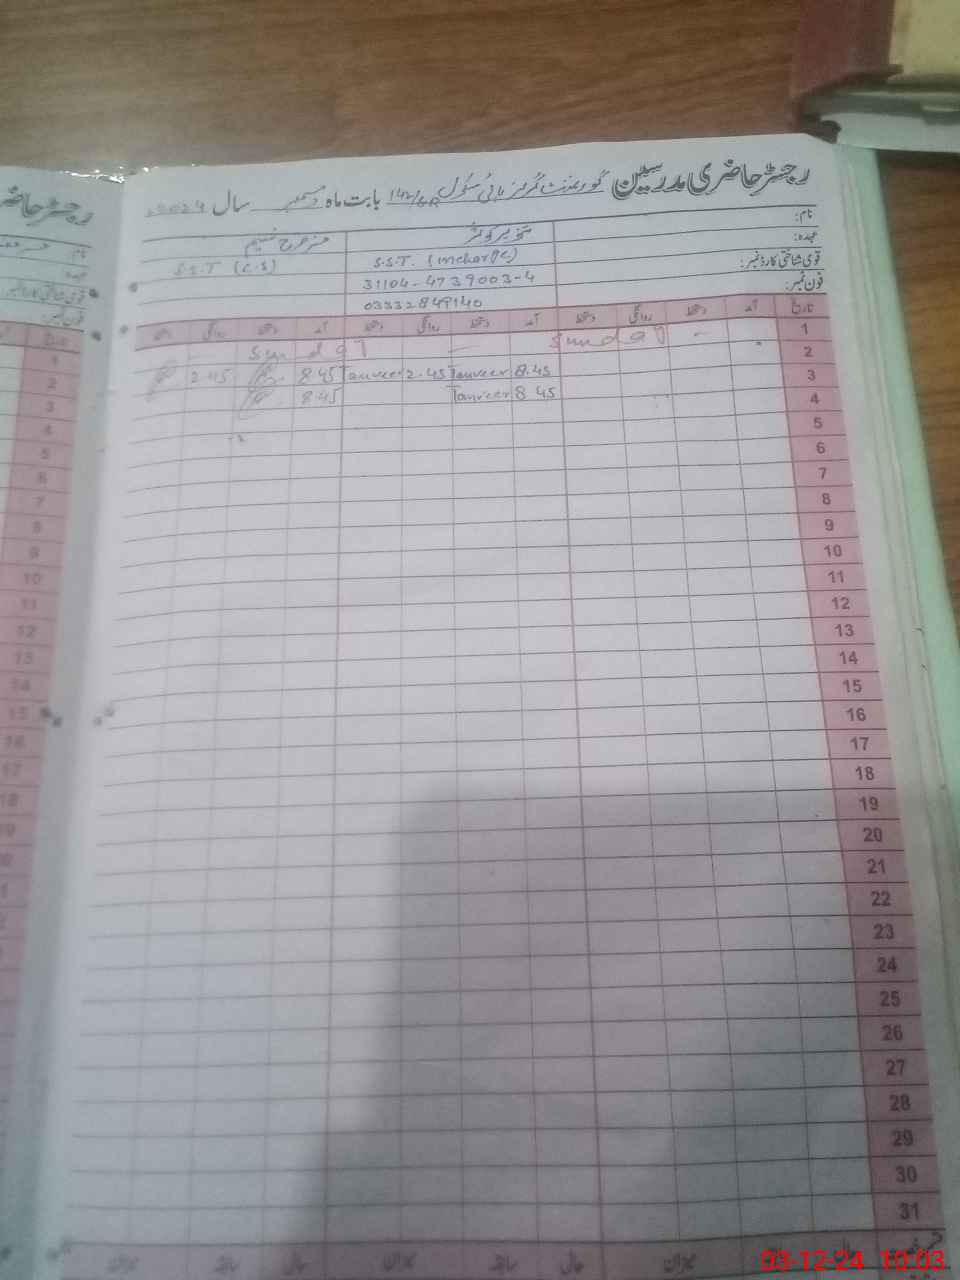 رجسٹر حاضری مدرسین گورنمنٹ گرلز ہائی سکول 142 بابت ماہ دسمبر سال 2024
نام:
عہدہ: S.S.T. (Incharge) S.S.T (C.S)
قومی شناختی کارڈ نمبر: 31104-4739003-4
فون نمبر: 03332849140
تاریخ آمد دستخط روانگی دستخط آمد دستخط روانگی دستخط آمد دستخط روانگی دستخط
1 Sunday Sunday
2 8.45 Tanveer 2.45 Tanveer 8.45 2.45
3 8.45 Tanveer 8.45
4
5
6
7
8
9
10
11
12
13
14
15
16
17
18
19
20
21
22
23
24
25
26
27
28
29
30
31
میزان سابقہ حال میزان سابقہ حال میزان
03-12-24 10:03